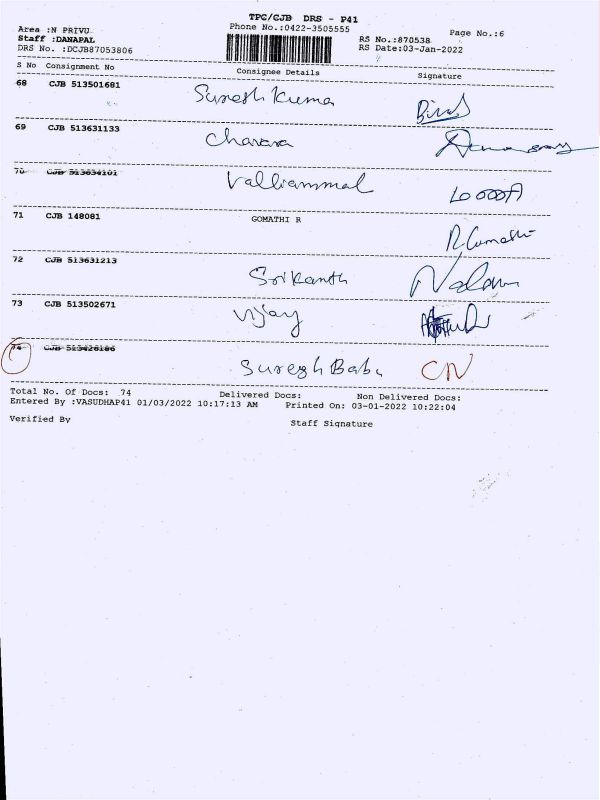 TPC/CJB DRS - P41
Area :N PRIVU
Phone No.:0422-3505555
Page No.:6
Staff :DANAPAL
RS No.:870538
DRS No. :DCJB87053806
RS Date:03-Jan-2022
S No Consignment No Consignee Details Signature
68 CJB 513501681 Suresh Kumar
69 CJB 513631133 Charara
70 CJB 513634101 Valliammal
71 CJB 148081 GOMATHI R R Gomathi
72 CJB 513631213 Srikanth
73 CJB 513502671 Vijay
74 CJB 513428186 Suresh Babu CN
Total No. Of Docs: 74 Delivered Docs: Non Delivered Docs:
Entered By :VASUDHAP41 01/03/2022 10:17:13 AM Printed On: 03-01-2022 10:22:04
Verified By Staff Signature